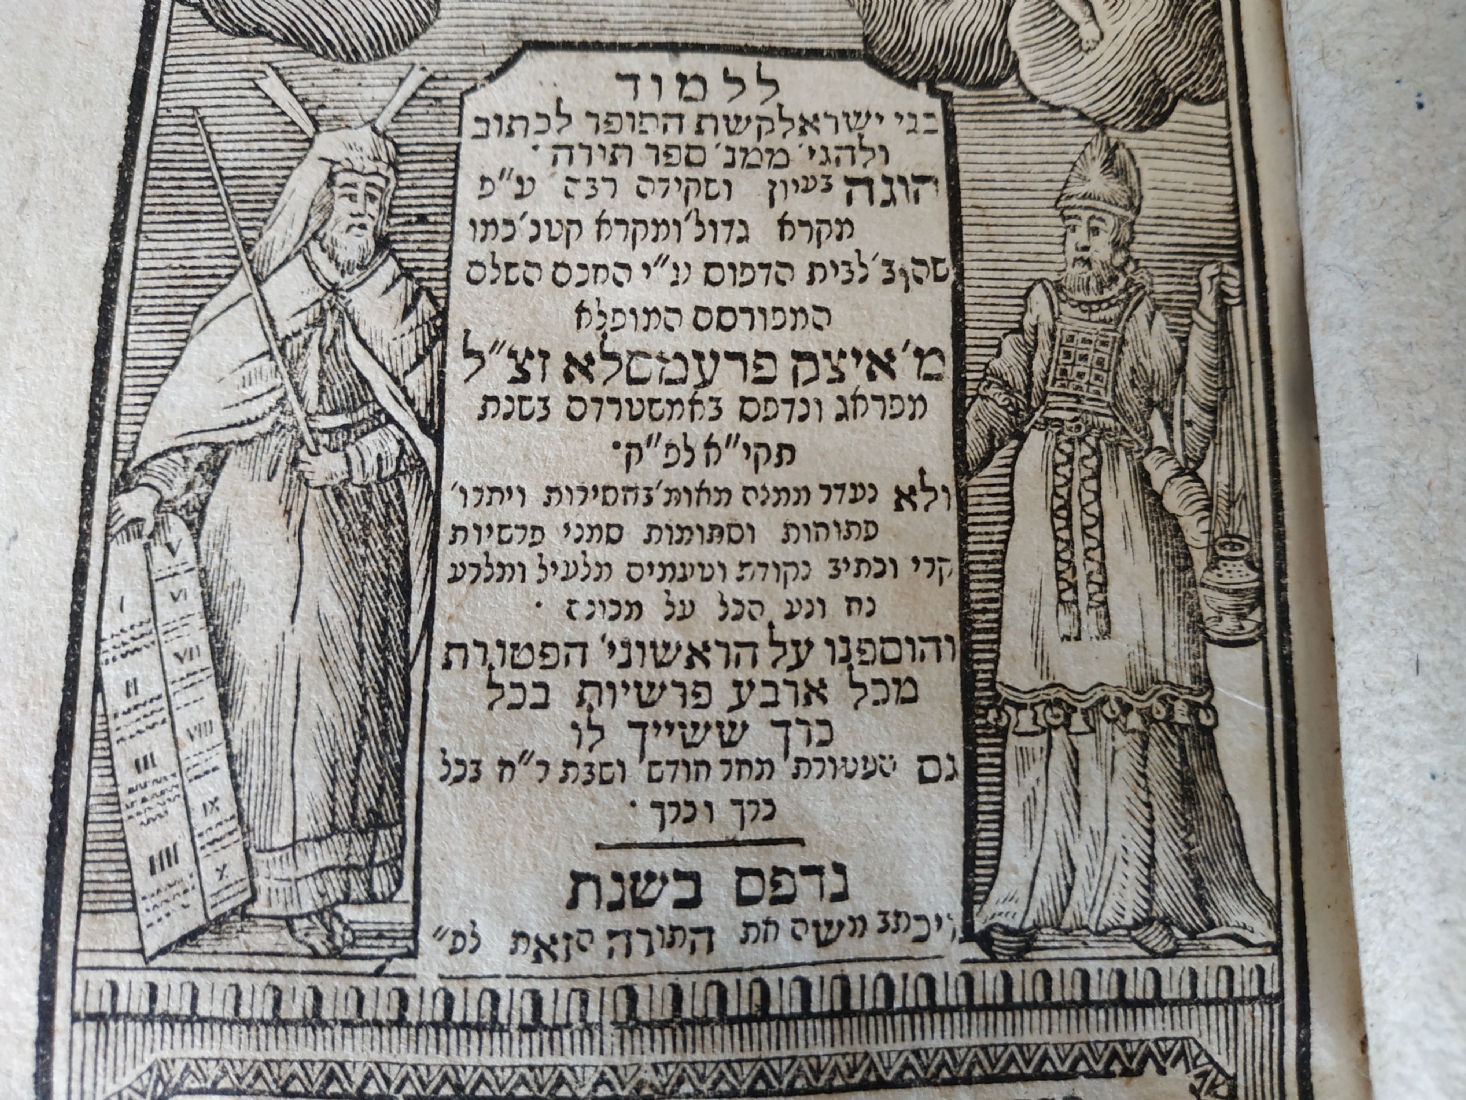 ללמוד
בני ישראל קשת הסופר לכתוב
ולהגי׳ ממנ׳ ספר תורה·
הוגה בעיון ושקידה רבה ע״פ
מקרא גדול׳ ומקרא קטנ׳ כמו
שהוב׳ לבית הדפוס ע״י החכם השלם
המפורסם המופלא
מ׳ איצק פרעמסלא זצ״ל
מפראג ונדפס באמשטרדם בשנת
תקי״א לפ״ק·
ולא נעדר ממנה מאות׳ בחסירות ויתרו׳
פתוחות וסתומות סמני פרשיות
קרי וכתיב נקודת וטעמים מלעיל ומלרע
נח ונע הכל על מכונה·
והוספנו על הראשוני׳ הפטורת
מכל ארבע פרשיות בכל
כרך ששייך לו
גם הפטורת מחר חודש ושבת ר״ח בכל
כרך וכרך·
נדפס בשנת
ויכתב משה את התורה הזאת לפ״
I
II
III
IIII
V
VI
VII
VIII
IX
X